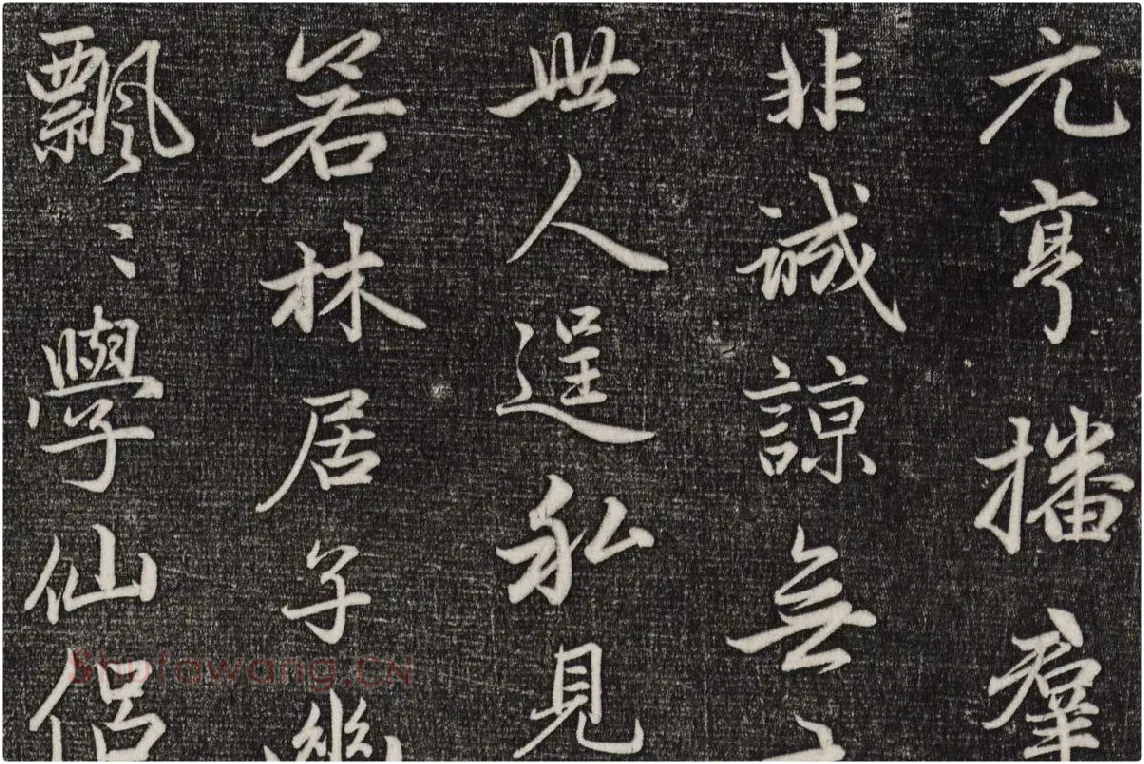 元亨播群
非誠諒無
世人逞私見
若林居子幾
飄〻學仙侶
Shufawang.CN